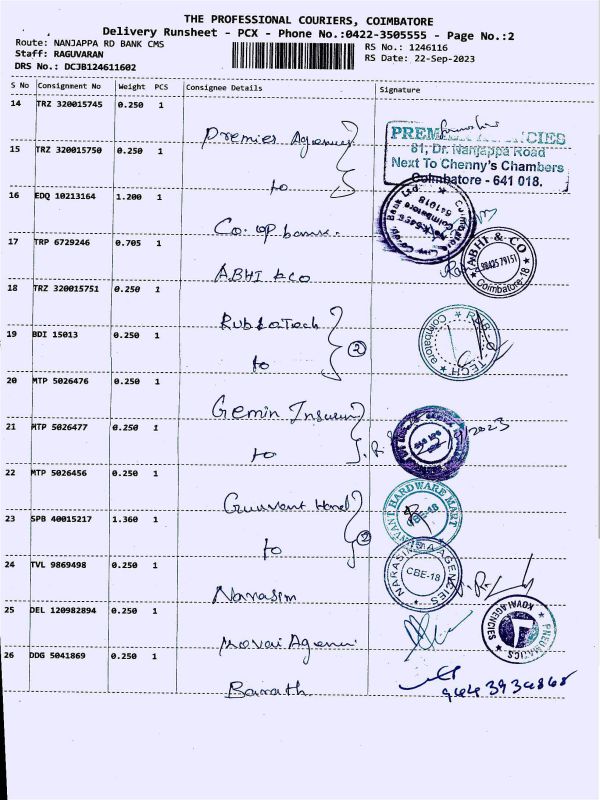 THE PROFESSIONAL COURIERS, COIMBATORE
Delivery Runsheet - PCX - Phone No.:0422-3505555 - Page No.:2
Route: NANJAPPA RD BANK CMS
RS No.: 1246116
Staff: RAGUVARAN
RS Date: 22-Sep-2023
DRS No.: DCJB124611602
S No Consignment No Weight PCS Consignee Details Signature
14 TRZ 320015745 0.250 1
Premier Agency
PREMIER AGENCIES
81, Dr. Nanjappa Road
Next To Chenny's Chambers
Coimbatore - 641 018.
15 TRZ 320015750 0.250 1
to
16 EDQ 10213164 1.200 1
Co. op bank.
Coimbatore
641018
17 TRP 6729246 0.705 1
ABHI &CO
ABHI & CO
98425 79151
Coimbatore-18
18 TRZ 320015751 0.250 1
RUB-O-TECH
Coimbatore
19 BDI 15013 0.250 1
to
2
20 MTP 5026476 0.250 1
Gemin
21 MTP 5026477 0.250 1
to
2023
22 MTP 5026456 0.250 1
HARDWARE MART
CBE-18
23 SPB 40015217 1.360 1
to
2
24 TVL 9869498 0.250 1
Narasim
NARASIM AGENCIES
CBE-18
25 DEL 120982894 0.250 1
Kovai
KOVAI AGENCIES
PNEUMATICS
26 DDG 5041869 0.250 1
Barath